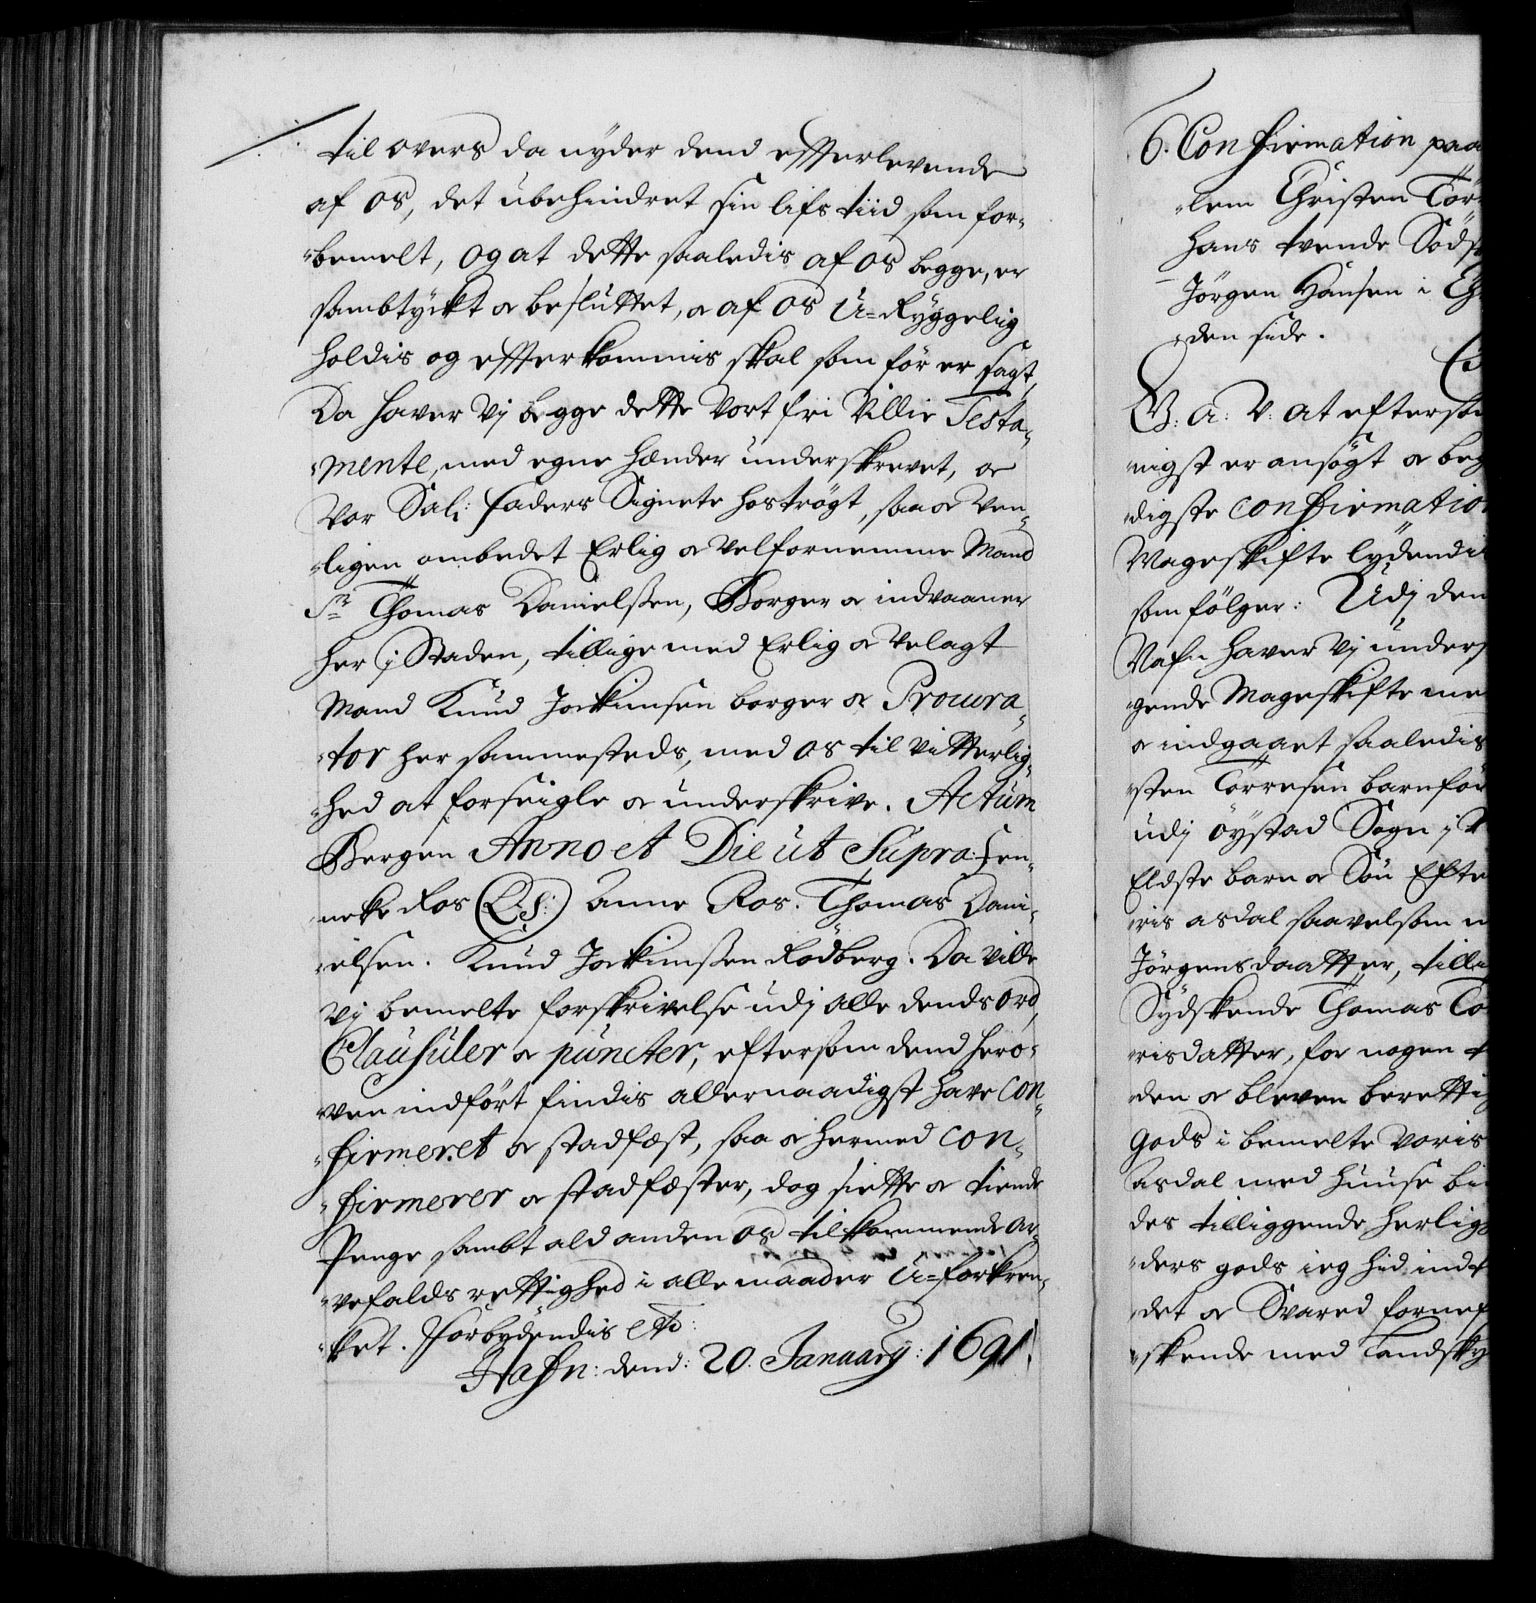 til overs da nyder dend effterlevende
af os, det ubehindret sin lifs tiid som for-
bemelt, og at dette saaledis af os begge, er
sambtyckt & besluttet, & af os U-Ryggelig
holdis og effterkommis skal som før er sagt,
Da haver Vj begge dette Vort fri Villie Testa-
mente, med egne hænder underskrevet, &
Vor Sal: faders Signete hostrøgt, saa & Ven-
ligen ombedet Erlig & Velfornemme Mand
Sr Thomas Danielsen, Borger & indvaaner
her j Staden, tillige med Erlig & Velagt
Mand Knud Jockimsen borger & Procura-
tor her sammesteds, med os til Vitterlig-
hed at forseigle & underskrive. Actum
Bergen Anno et Die ut Supra. Hen-
neke Ros (L.S.) Anne Ros. Thomas Dani-
elsen. Knud Jockimsen Rødberg. Da ville
Vj bemelte forskrivelse udj alle dends ord,
Clausuler & puncter, eftersom dend hero-
ven indført findis allernaadigst have con-
firmeret & stadfæst, saa & hermed con-
firmerer & stadfæster, dog siette & tiende
Penge sambt ald anden os tilkommende ar-
vefalds rettighed i alle maader U-forkren-
ket. Forbydendis etc:
Hafn: dend: 20. January: 1691.
6. Confirmation paa
lem Christen Tör
hans tvende Södsk
Jörgen Hansen i
den side.
V. a: V: at eftersom
nigst er ansøgt & beg
digste confirmation
Mageskifte lydendis
som følger: Udj den
Nafn haver Vj unders
gende Mageskifte me
& indgaaet saaledis
sten Törresen barnfød
udj öystad Sogn j
Eldste barn & Søn Efte
ris asdal saavelsom
Jörgensdaatter, tilli
Sydskende Thomas To
risdatter, for nogen
den & bleven beretti
gods i bemelte Voris
asdal med Huuse
des tilliggende herlig
ders gods jeg hid indt
det & Svared fornef
skende med Landsky